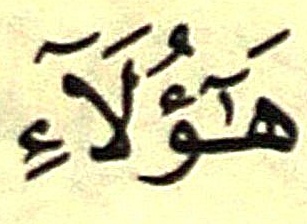 هَـٰٓؤُلَآءِ